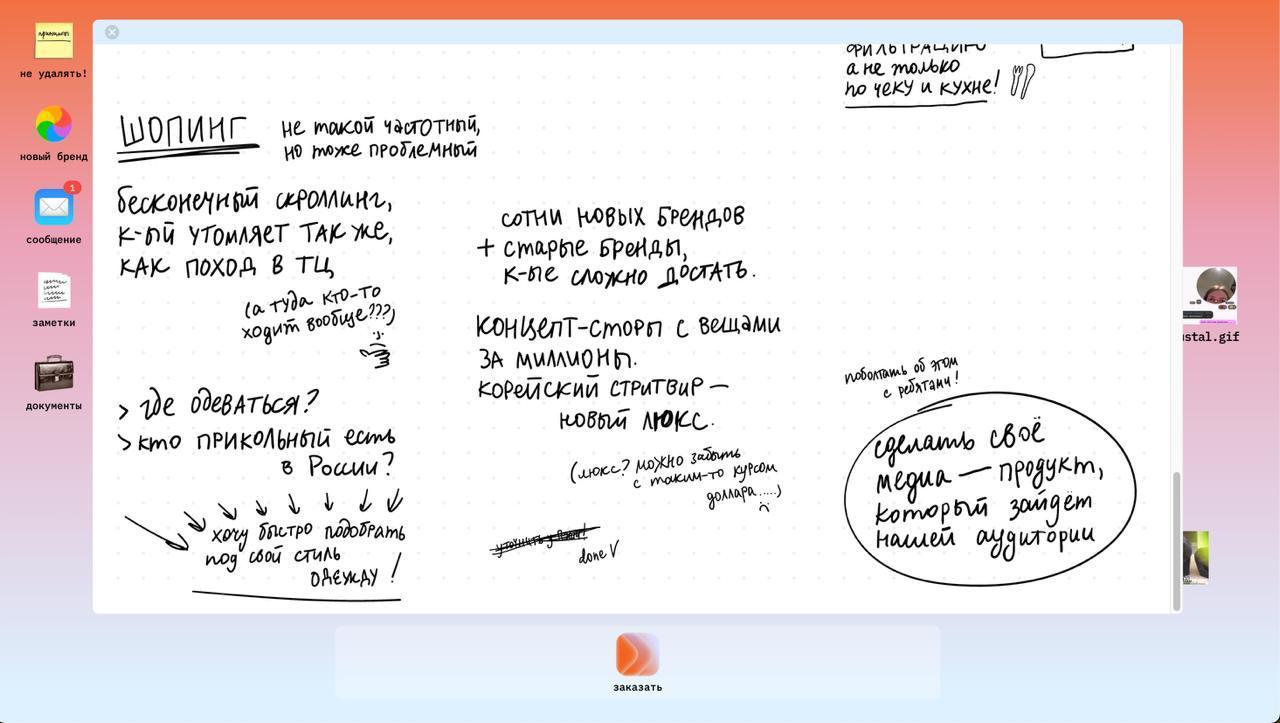 не удалять!
новый бренд
1
сообщение
заметки
документы
фильтрацию
а не только
по чеку и кухне!
ШОПИНГ
не такой частотный,
но тоже проблемный
бесконечный скроллинг,
к-ый утомляет так же,
как поход в ТЦ
(а туда кто-то
ходит вообще???)
> где одеваться?
> кто прикольный есть
в России?
хочу быстро подобрать
под свой стиль
одежду!
сотни новых брендов
+ старые бренды,
к-ые сложно достать.
концепт-сторы с вещами
за миллионы.
корейский стритвир —
новый люкс.
(люкс? можно забыть
с таким-то курсом
доллара.....)
done V
поболтать об этом
с ребятами!
сделать своё
медиа — продукт,
который зайдёт
нашей аудитории
ustal.gif
заказать